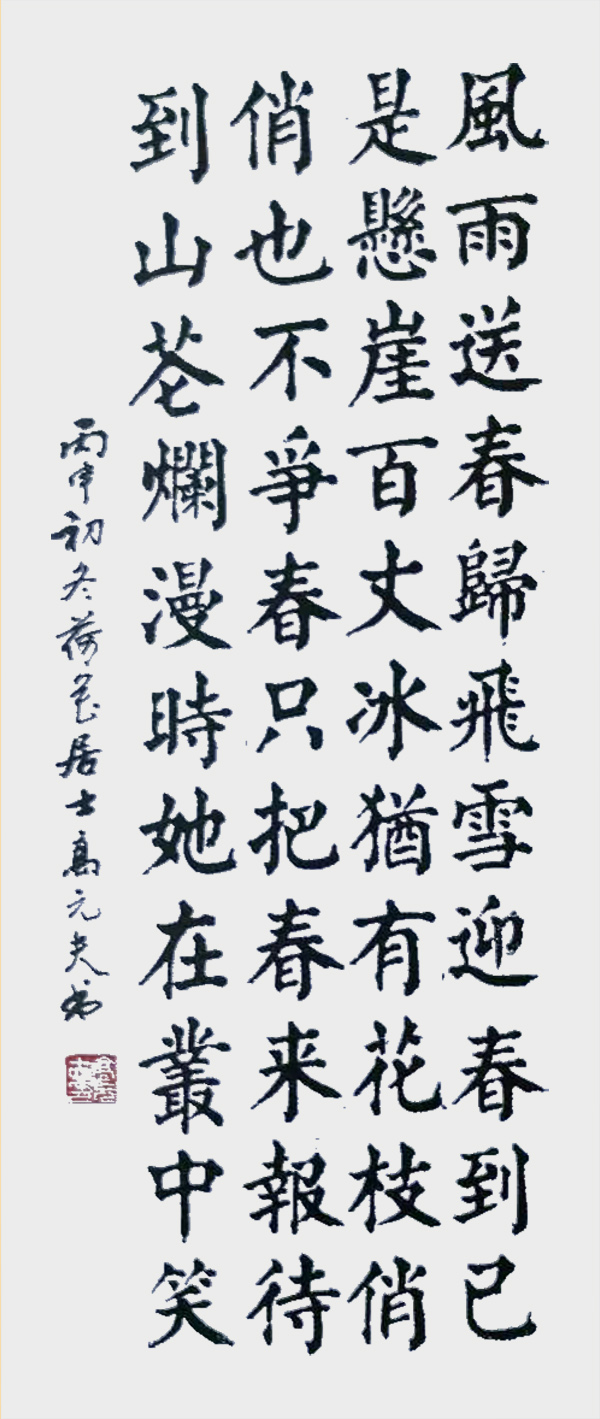 風雨送春歸飛雪迎春到已
是懸崖百丈冰猶有花枝俏
俏也不爭春只把春来報待
到山花爛漫時她在叢中笑
丙申初冬荷花居士高元夫书